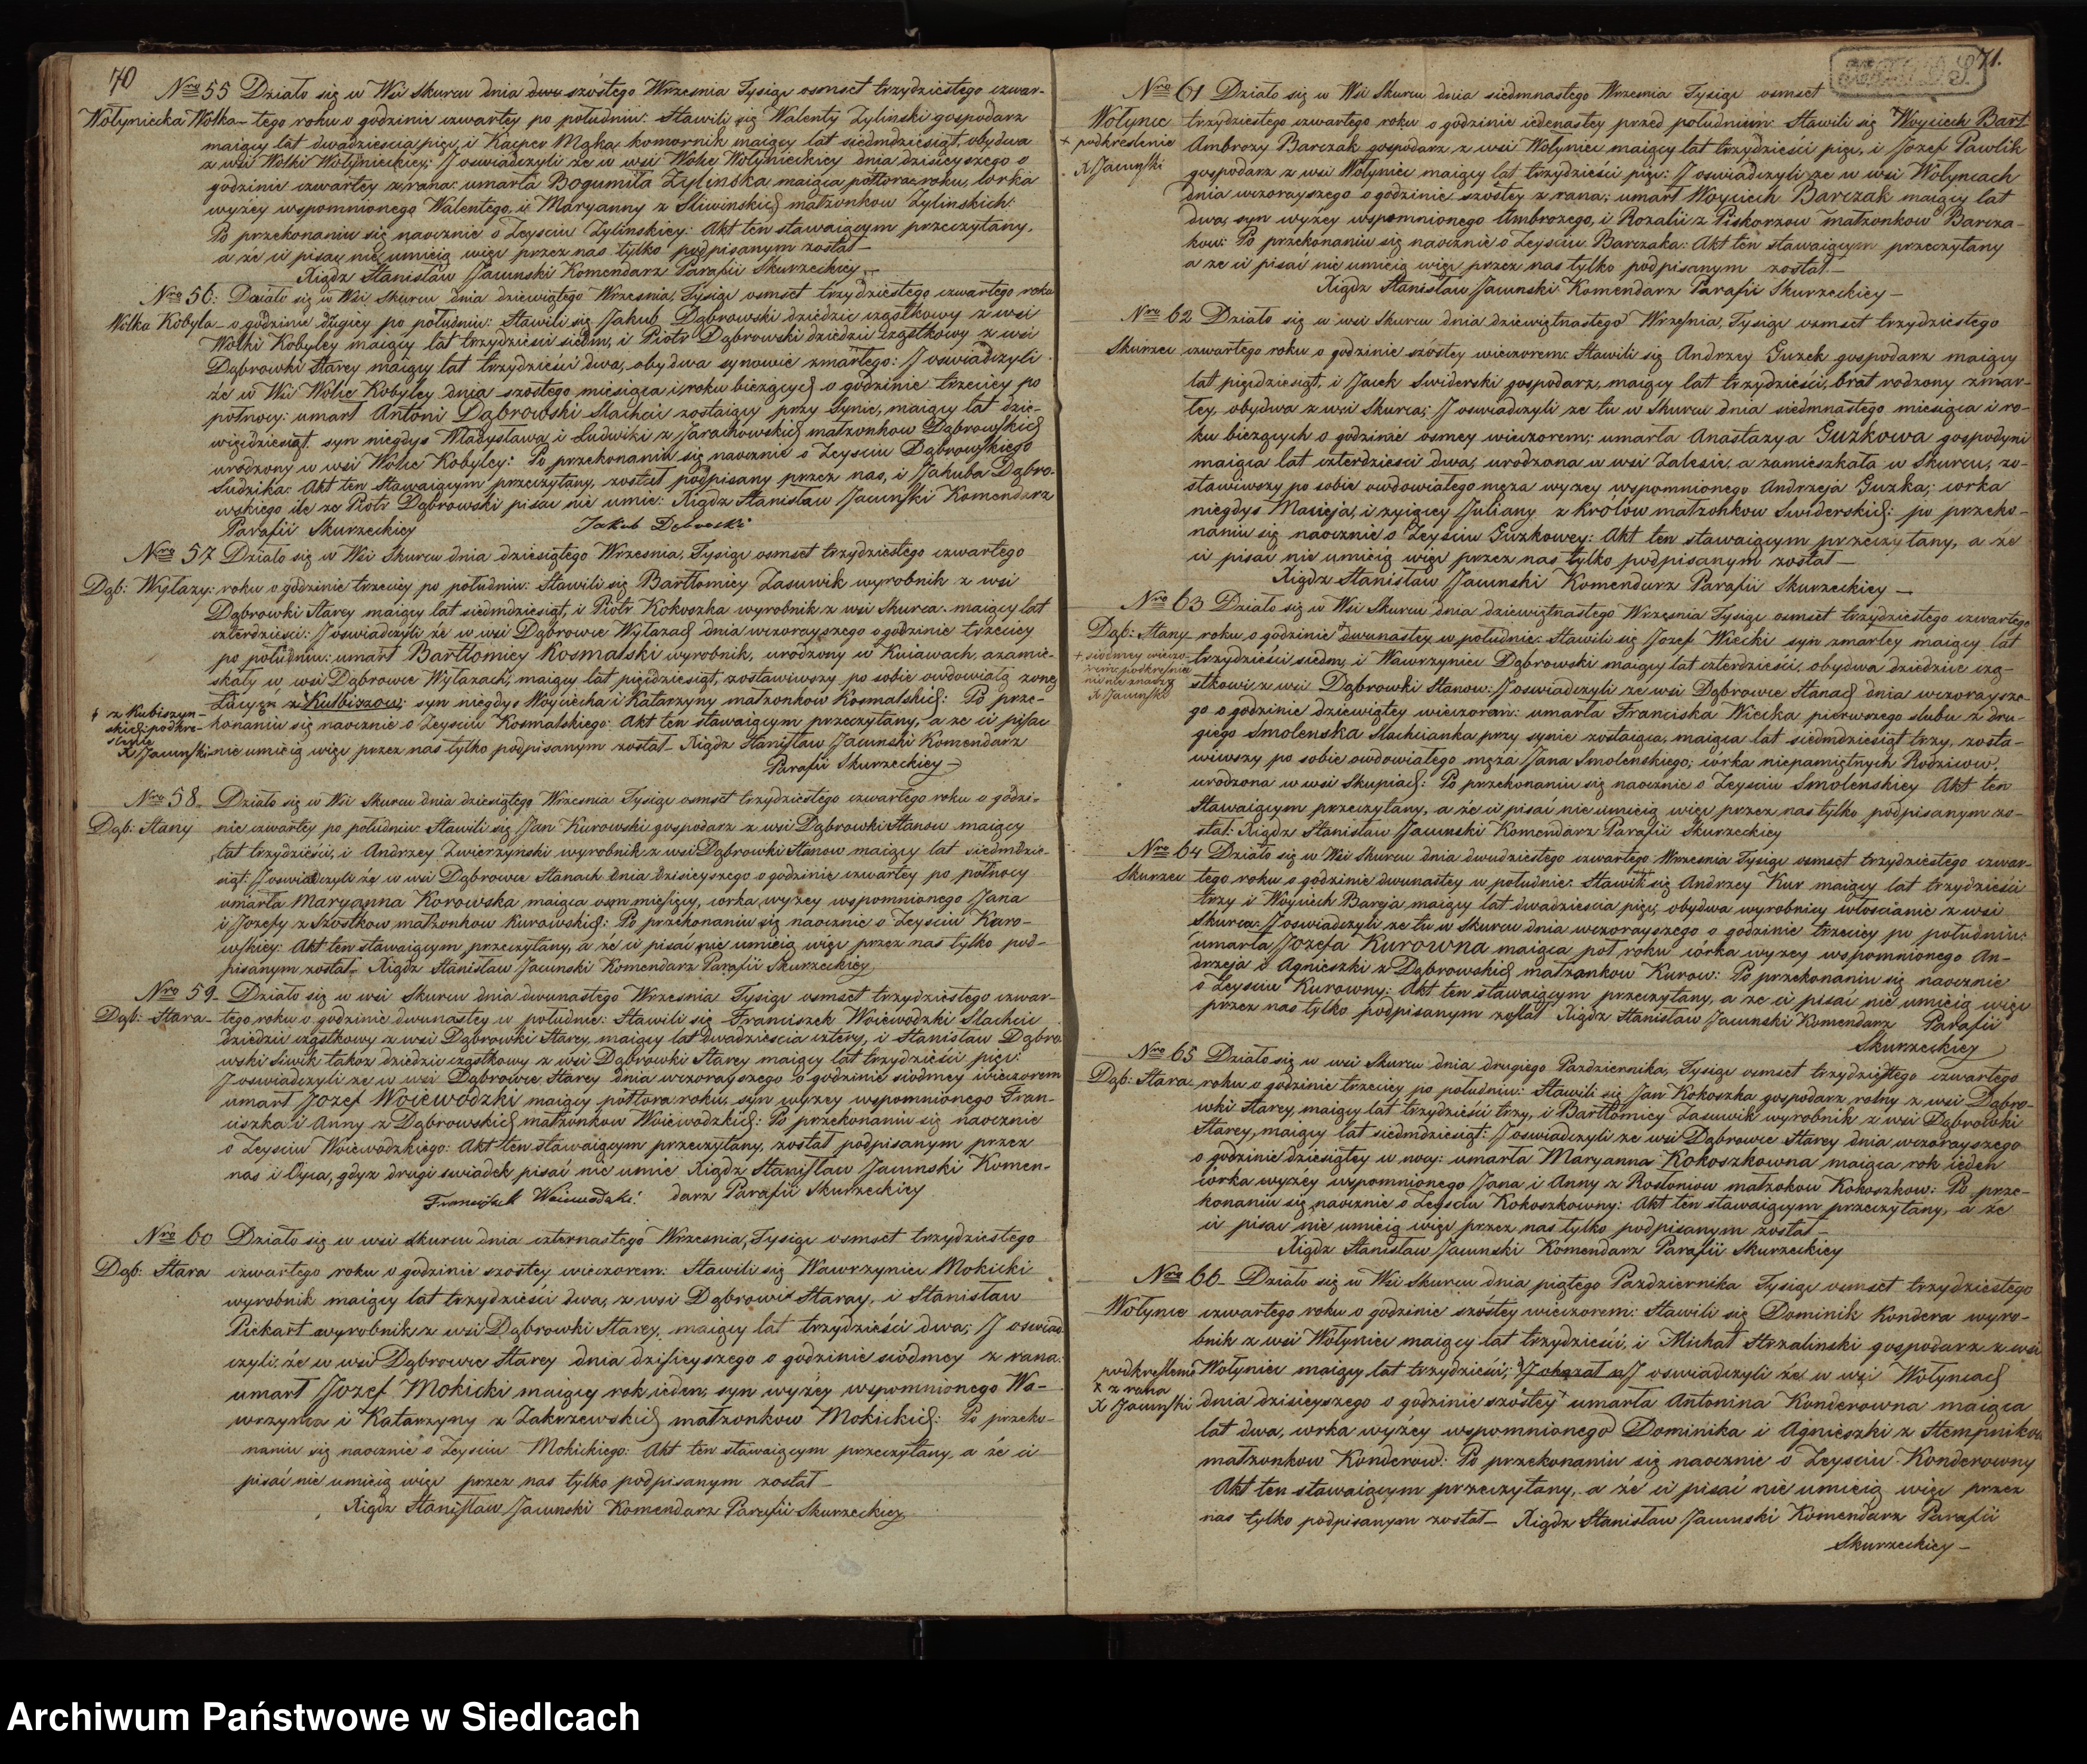 70
Nro 55 Działo się w Wsi Skurcu dnia szóstego Wrzesnia Tysiąc osmset trzydziestego czwar-
Wołyniecka Wolka tego roku o godzinie czwartey po południu: Stawili się Walenty Zylinski gospodarz
maiący lat dwadziescia pięć, i Kacper Mąka komornik maiący lat siedmdziesiąt, obydwa
z wsi Wolki Wołynieckiey; J oswiadczyli że w wsi Wolce Wołynieckiey dnia dzisieyszego o
godzinie czwartey z rana: umarła Bogumiła Zylinska maiąca półtora roku, corka
wyżey wspomnionego Walentego, i Maryanny z Sliwinskich małżonkow Zylinskich:
Po przekonaniu się naocznie o Zeysciu Zylinskiey: Akt ten stawaiącym przeczytany,
a że ci pisać nie umieią więc przez nas tylko podpisanym został
Xiądz Stanisław Jawnski Komendarz Parafii Skurzeckiey
Nro 56: Działo się w Wsi Skurcu dnia dziewiątego Wrzesnia, Tysiąc osmset trzydziestego czwartego roku
Wolka Kobyla o godzinie drugiey po południu: Stawili się Jakub Dąbrowski dziedzic cząstkowy z wsi
Wolki Kobyley maiący lat trzydziesci siedm, i Piotr Dąbrowski dziedzic cząstkowy z wsi
Dąbrowki Starey maiący lat trzydzieści dwa, obydwa synowie zmarłego: J oswiadczyli
że w Wsi Wolce Kobyley dnia szostego miesiąca i roku bieżących o godzinie trzeciey po
połnocy: umarł Antoni Dąbrowski Slachcic zostaiący przy Synie, maiący lat dzie-
więdziesiąt, syn niegdys Władysława i Ludwiki z Jarachowskich małżonkow Dąbrowskich
urodzony w wsi Wolce Kobyley: Po przekonaniu się naocznie o Zeysciu Dąbrowskiego
Ludzika: Akt ten Stawaiącym przeczytany, został podpisany przez nas, i Jakuba Dąbro-
wskiego ile ze Piotr Dąbrowski pisać nie umie: Xiądz Stanisław Jawnski Komendarz
Parafii Skurzeckiey Jakub Dąbroski
Nro 57 Działo się w Wsi Skurcu dnia dziesiątego Wrzesnia, Tysiąc osmset trzydziestego czwartego
Dąb: Wyłazy: roku o godzinie trzeciey po południu: Stawili się Bartłomiey Zasuwik wyrobnik z wsi
Dąbrowki Starey maiący lat siedmdziesiąt, i Piotr Kokoszka wyrobnik z wsi Skurca maiący lat
czterdzieści: J oswiadczyli że w wsi Dąbrowce Wyłazach dnia wczorayszego o godzinie trzeciey
po południu: umarł Bartłomiey Kosmalski wyrobnik, urodzony w Kuiawach, a zamie-
skały w wsi Dąbrowce Wyłazach, maiący lat pięćdziesiąt, zostawiwszy po sobie owdowiałą zonę
Łucyą z Kulbiszow; syn niegdys Woyciecha i Katarzyny małżonkow Kosmalskich: Po prze-
+ z Kubiszyn-
skich podkre-
slenie
X Jawnski
konaniu się naocznie o Zeysciu Kosmalskiego: Akt ten stawaiącym przeczytany, a ze ci pisać
nie umieią więc przez nas tylko podpisanym został Xiądz Stanisław Jawnski Komendarz
Parafii Skurzeckiey
Nro 58 Działo się w Wsi Skurcu dnia dziesiątego Wrzesnia Tysiąc osmset trzydziestego czwartego roku o godzi-
Dąb: Stany nie czwartey po południu: Stawili się Jan Kurowski gospodarz z wsi Dąbrowki Stanow maiący
lat trzydzieści, i Andrzey Zwierzynski wyrobnik z wsi Dąbrowki Stanow maiący lat siedmdzie-
siąt: J oswiadczyli że w wsi Dąbrowce Stanach dnia dzisieyszego o godzinie czwartey po połnocy
umarła Maryanna Korowska maiąca osm miesięcy, corka wyżey wspomnionego Jana
i Jozefy z Szostkow małżonkow Kurowskich: Po przekonaniu się naocznie o Zeysciu Kuro-
wskiey: Akt ten stawaiącym przeczytany, a że ci pisać nie umieią więc przez nas tylko pod-
pisanym został Xiądz Stanisław Jawnski Komendarz Parafii Skurzeckiey
Nro 59 Działo się w wsi Skurcu dnia dwunastego Wrzesnia Tysiąc osmset trzydziestego czwar-
Dąb: Stara tego roku o godzinie dwunastey w południe: Stawili się Franciszek Woiewodzki Slachcic
dziedzic cząstkowy z wsi Dąbrowki Starey, maiący lat dwadziescia cztery, i Stanisław Dąbro
wski Siwik także dziedzic cząstkowy z wsi Dąbrowki Starey maiący lat trzydzieści pięć:
J oswiadczyli ze w wsi Dąbrowce Starey dnia wczorayszego o godzinie siódmey wieczorem
umarł Jozef Woiewodzki maiący połtora roku, syn wyżey wspomnionego Fran-
ciszka i Anny z Dąbrowskich małżonkow Woiewodzkich: Po przekonaniu się naocznie
o Zeysciu Woiewodzkiego: Akt ten stawaiącym przeczytany, został podpisanym przez
nas i Oyca, gdyz drugi swiadek pisać nie umie Xiądz Stanisław Jawnski Komen-
Franciszek Woiewodzki darz Parafii Skurzeckiey
Nro 60 Działo się w wsi Skurcu dnia czternastego Wrzesnia, Tysiąc osmset trzydziestego
Dąb: Stara czwartego roku o godzinie szostey wieczorem: Stawili się Wawrzyniec Mokicki
wyrobnik maiący lat trzydzieści dwa, z wsi Dąbrowki Staray, i Stanisław
Piekart wyrobnik z wsi Dąbrowki Starey, maiący lat trzydzieści dwa; J oswiad
czyli: że w wsi Dąbrowce Starey dnia dzisieyszego o godzinie siódmey z rana:
umarł Jozef Mokicki maiący rok ieden, syn wyżey wspomnionego Wa-
wrzynca i Katarzyny z Zakrzewskich małżonkow Mokickich: Po przeko-
naniu się naocznie o Zeysciu Mokickiego: Akt ten stawaiącym przeczytany, a że ci
pisać nie umieią więc przez nas tylko podpisanym został
Xiądz Stanisław Jawnski Komendarz Parafii Skurzeckiey
71.
Nro 61 Działo się w Wsi Skurcu dnia siedmnastego Wrzesnia Tysiąc osmset
Wołynce trzydziestego czwartego roku o godzinie iedenastey przed południem: Stawili się Woyciech Bart
+ podkreslenie
X Jawnski
Ambrozy Barczak gospodarz z wsi Wołyniec maiący lat trzydzieści pięć, i Jozef Pawlik
gospodarz z wsi Wołyniec maiący lat trzydzieści pięć: J oswiadczyli że w wsi Wołyncach
dnia wczorayszego o godzinie szóstey z rana; umarł Woyciech Barczak maiący lat
dwa, syn wyżey wspomnionego Ambrożego, i Rozalii z Piskorzow małżonkow Barcza-
kow: Po przekonaniu się naocznie o Zeysciu Barczaka: Akt ten stawaiącym przeczytany
a ze ci pisać nie umieią więc przez nas tylko podpisanym został
Xiądz Stanisław Jawnski Komendarz Parafii Skurzeckiey
Nro 62 Działo się w wsi Skurcu dnia dziewiętnastego Wrzesnia, Tysiąc osmset trzydziestego
Skurzec czwartego roku o godzinie szóstey wieczorem: Stawili się Andrzey Guzek gospodarz maiący
lat pięćdziesiąt, i Jacek Swiderski gospodarz, maiący lat trzydzieści, brat rodzony zmar-
łey, obydwa z wsi Skurca; J oswiadczyli ze tu w Skurcu dnia siedmnastego miesiąca i ro-
ku bieżących o godzinie osmey wieczorem; umarła Anastazya Guzkowa gospodyni
maiąca lat czterdziesci dwa, urodzona w wsi Zalesie, a zamieszkała w Skurcu, zo-
stawiwszy po sobie owdowiałego męża wyzey wspomnionego Andrzeja Guzka; corka
niegdys Macieja, i żyiącey Julianny z Królow małzonkow Swiderskich: po przeko-
naniu się naocznie o Zeysciu Guzkowey: Akt ten stawaiącym przeczytany, a że
ci pisać nie umieią więc przez nas tylko podpisanym został
Xiądz Stanisław Jawnski Komendarz Parafii Skurzeckiey
Nro 63 Działo się w Wsi Skurcu dnia dziewiętnastego Wrzesnia Tysiąc osmset trzydziestego czwartego
Dąb: Stany roku o godzinie dwunastey w południe: Stawili się Jozef Wiecki syn zmarłey maiący lat
+ siódmey wieczo-
rem podkreslenie
nic nie znaczy
X Jawnski
trzydzieści siedm, i Wawrzyniec Dąbrowski maiący lat czterdzieści, obydwa dziedzice czą-
stkowi, z wsi Dąbrowki Stanow: J oswiadczyli ze wsi Dąbrowce Stanach dnia wczoraysze-
go o godzinie dziewiątey wieczorem: umarła Franciska Wiecka pierwszego slubu z dru-
giego Smolenska Slachcianka przy synie zostaiąca, maiąca lat siedmdziesiąt trzy, zosta-
wiwszy po sobie owdowiałego męża Jana Smolenskiego; corka niepamiętnych Rodzicow,
urodzona w wsi Skupiach: Po przekonaniu się naocznie o Zeysciu Smolenskiey Akt ten
Stawaiącym przeczytany, a że ci pisać nie umieią więc przez nas tylko podpisanym zo-
stał: Xiądz Stanisław Jawnski Komendarz Parafii Skurzeckiey
Nro 64 Działo się w Wsi Skurcu dnia dwudziestego czwartego Wrzesnia Tysiąc osmset trzydziestego czwar-
Skurzec tego roku o godzinie dwunastey w południe: Stawili się Andrzey Kur maiący lat trzydzieści
trzy i Woyciech Bareja maiący lat dwadziescia pięć, obydwa wyrobnicy włoscianie z wsi
Skurca: J oswiadczyli ze tu w Skurcu dnia wczorayszego o godzinie trzeciey po południu:
umarła Jozefa Kurowna maiąca poł roku córka wyzey wspomnionego An-
drzeja i Agnieszki z Dąbrowskich małzonkow Kurow: Po przekonaniu się naocznie
o Zeysciu Kurowny: Akt ten stawaiącym przeczytany, a ze ci pisać nie umieią więc
przez nas tylko podpisanym został Xiądz Stanisław Jawnski Komendarz Parafii
Skurzeckiey
Nro 65 Działo się w wsi Skurcu dnia drugiego Pazdziernika, Tysiąc osmset trzydziestego czwartego
Dąb: Stara roku o godzinie trzeciey po południu: Stawili się Jan Kokoszka gospodarz rolny z wsi Dąbro-
wki Starey, maiący lat trzydzieści trzy, i Bartłomiey Zasuwik wyrobnik z wsi Dąbrowki
Starey, maiący lat siedmdziesiąt: J oswiadczyli ze wsi Dąbrowce Starey dnia wczorayszego
o godzinie dziesiątey w nocy: umarła Maryanna Kokoszkowna maiąca rok ieden
córka wyżey wspomnionego Jana i Anny z Rostoniow małzokow Kokoszkow: Po prze-
konaniu się naocznie o Zeysciu Kokoszkowny: Akt ten stawaiącym przeczytany, a że
ci pisać nie umieią więc przez nas tylko podpisanym został
Xiądz Stanisław Jawnski Komendarz Parafii Skurzeckiey
Nro 66 Działo się w Wsi Skurcu dnia piątego Pazdziernika Tysiąc osmset trzydziestego
Wołynce czwartego roku o godzinie szóstey wieczorem: Stawili się Dominik Kondera wyro-
bnik z wsi Wołyniec maiący lat trzydzieści, i Michał Strzalinski gospodarz z wsi
podkreslenie
+ z rana
X Jawnski
Wołyniec maiący lat trzydzieści; J oswiadczyli że w wsi Wołyncach
dnia dzisieyszego o godzinie szóstey umarła Antonina Konderowna maiąca
lat dwa, corka wyżey wspomnionego Dominika i Agnieszki z Stempnikow
małzonkow Konderow: Po przekonaniu się naocznie o Zeysciu Konderowny
Akt ten stawaiącym przeczytany, a że ci pisać nie umieią więc przez
nas tylko podpisanym został Xiądz Stanisław Jawnski Komendarz Parafii
Skurzeckiey
Archiwum Państwowe w Siedlcach